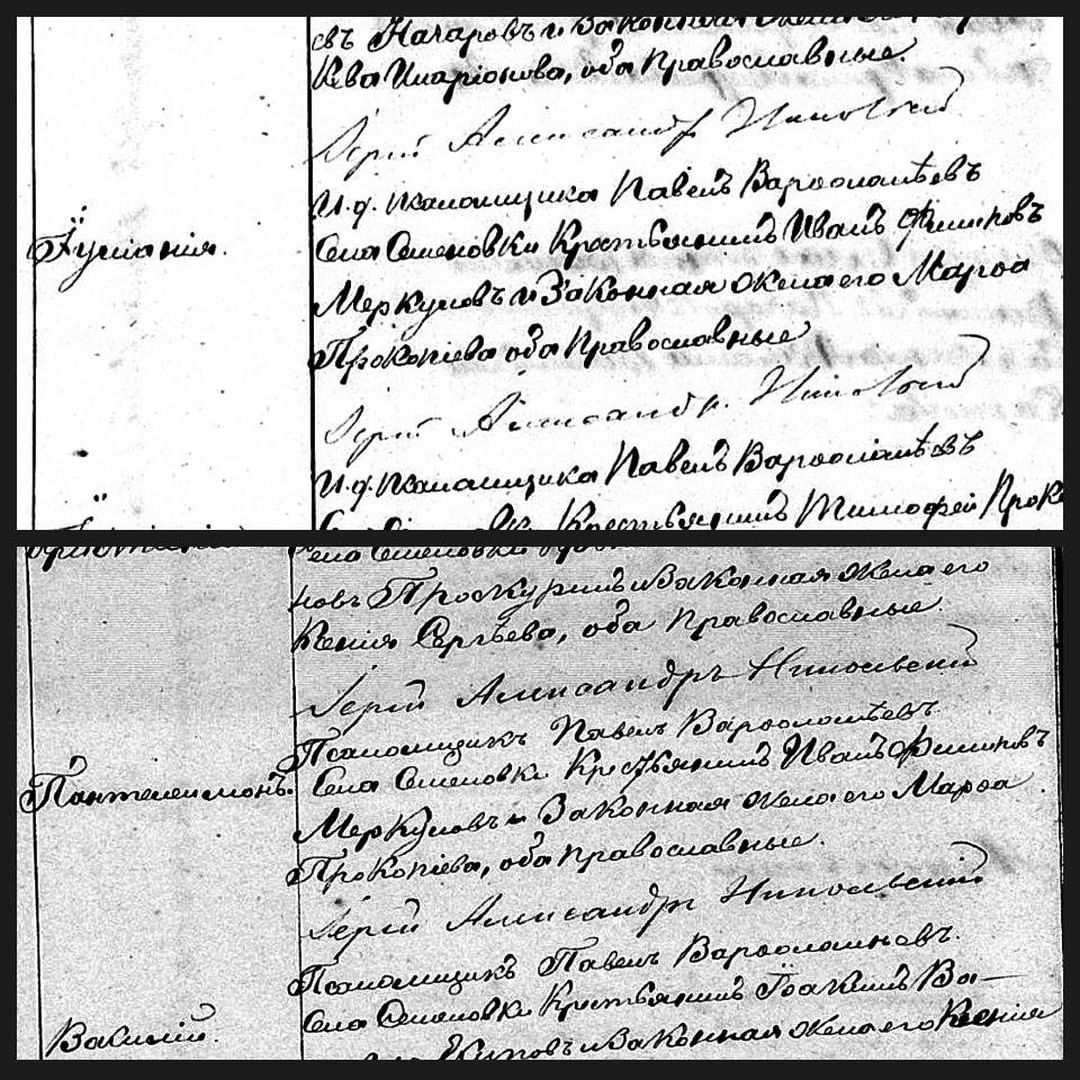 евъ Назаровъ и Законная жена его
Кева Иларіонова, оба Православные.
Іерей Александръ Никольскій
И.д. псаломщика Павелъ Варѳоломѣевъ
Іуліанія.
Села Семеновки Крестьянинъ Иванъ Филиповъ
Меркуловъ и Законная жена его Марѳа
Прокопіева оба Православные
Іерей Александръ Никольскій
И.д. псаломщика Павелъ Варѳоломѣевъ
Села Семеновки Крестьянинъ Тимофей Проко
Села Семеновки
новъ Проскуринъ и Законная жена его
Ксенія Сергѣева, оба Православные.
Іерей Александръ Никольскій
Псаломщикъ Павелъ Варѳоломѣевъ.
Пантелеимонъ.
Села Семеновки Крестьянинъ Иванъ Филиповъ
Меркуловъ и Законная жена его Марѳа
Прокопіева, оба православные.
Іерей Александръ Никольскій
Псаломщикъ Павелъ Варѳоломѣевъ.
Василій.
Села Семеновки Крестьянинъ Іоакимъ Ва-
и Законная жена его Ксенія